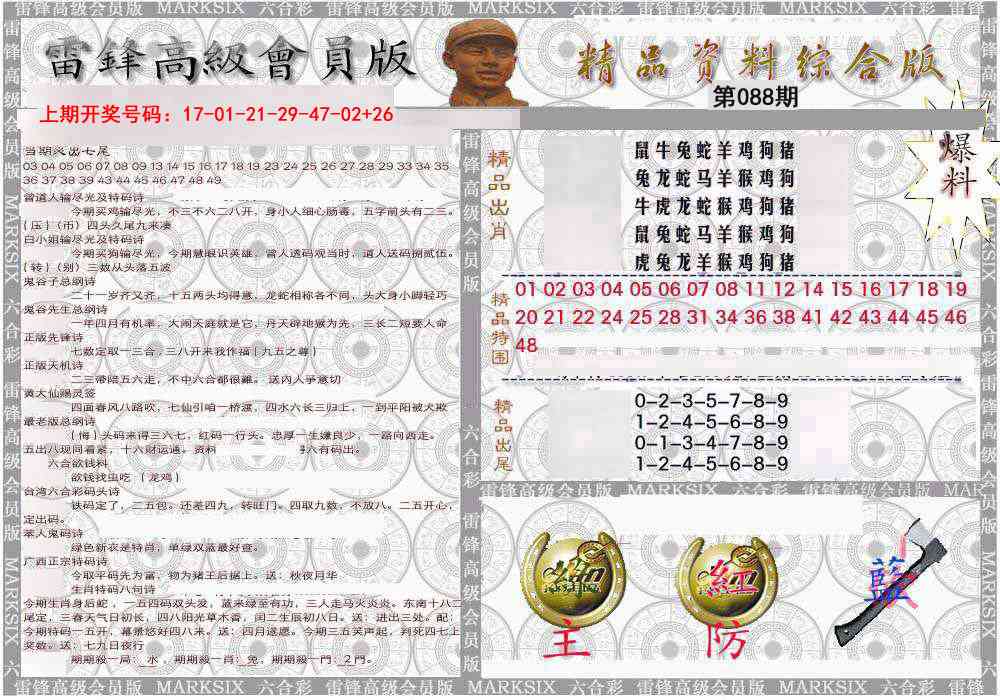 雷锋高级会员版 MARKSIX 六合彩 雷锋高级会员版 MARKSIX 六合彩 雷锋高级会员版 MARKSIX 六合彩 雷锋
雷鋒高級會員版
精品资料综合版
第088期
上期开奖号码：17-01-21-29-47-02+26
03 04 05 06 07 08 09 13 14 15 16 17 18 19 23 24 25 26 27 28 29 33 34 35
36 37 38 39 43 44 45 46 47 48 49
曾道人输尽光及特码诗
今期买鸡输尽光，不三不六二八开，身小人细心肠毒，五字前头有二三。
{压}{币} 四头久尾九来凑
白小姐输尽光及特码诗
今期买狗输尽光，今期慧眼识英雄，曾人透码观当时，道人送码捌贰伍。
{转}{别} 三数从头落五波
鬼谷子总纲诗
二十一岁齐又齐，十五两头均得意，龙蛇相称各不同，头大身小脚轻巧
鬼谷先生总纲诗
一年四月有机率，大闹天庭就是它，丹天辟地猴为先，三长二短要人命
正版先锋诗
七数定取一三合，三八开来我作福{九五之尊}
正版天机诗
二三带陪五六走，不中六合都很難。 送内人爭意切
黄大仙赐灵签
四面春风八路吹，七仙引咱一桥渡，四水六长三归上，一到平阳被犬欺
最老版总纲诗
{悔}头码来得三六七，红码一行头。忠厚一生嫌良少，一路向西走。
五出八现同着累，十六财运通。资料
六有码出。
六合欲钱料
欲钱找虫吃 {龙鸡}
台湾六合彩码头诗
铁码定了，二五包。还差四九，转旺门。四取九数，不放八。二五开心，
定出码。
本人鬼码诗
绿色新衣是特肖，单绿双蓝最好查。
广西正宗特码诗
今取平码先为富，物为猪王后据上。送：秋夜月华
生肖特码八句诗
今期生肖身后蛇，一五四码双头发，蓝来绿至有功，三人走马火炎炎。东南十八二
尾定，三春天气日初长，四八阳光草木香，闰二生辰初八日。送：进出三处。配：
今期特码一五开，幕景悠好四八来。送：四月遂愿。今期三五笑声起，判死四七上
奖数。送：七九日夜行
期期殺一局：水，期期殺一肖：兔，期期殺一門：2門。
精品出肖
鼠牛兔蛇羊鸡狗猪
兔龙蛇马羊猴鸡狗
牛虎龙蛇猴鸡狗猪
鼠兔蛇马羊猴鸡狗
虎兔龙羊猴鸡狗猪
爆料
精品特围
01 02 03 04 05 06 07 08 11 12 14 15 16 17 18 19
20 21 22 24 25 28 31 34 36 38 41 42 43 44 45 46
48
精品出尾
0-2-3-5-7-8-9
1-2-4-5-6-8-9
0-1-3-4-7-8-9
1-2-4-5-6-8-9
雷锋高级会员版 MARKSIX 六合彩 雷锋高级会员版 MARK
绿
主
紅
防
藍
雷锋高级会员版 MARKSIX 六合彩 雷锋高级会员版 MARKSIX 六合彩 雷锋高级会员版 MARKSIX 六合彩 雷锋